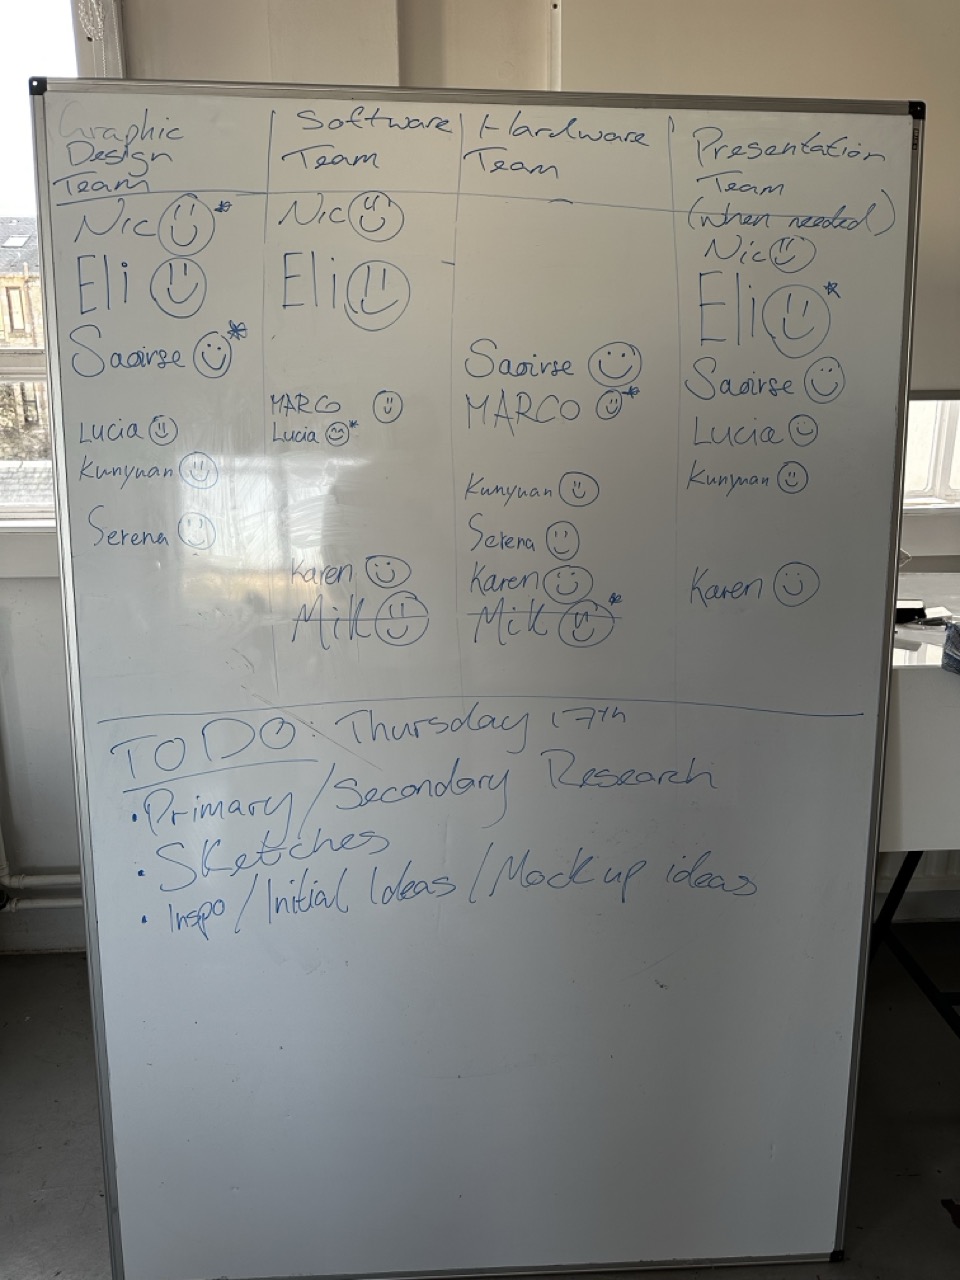 Graphic
Design
Team
Nic *
Eli
Saoirse *
Lucia
Kunyuan
Serena
Software
Team
Nic
Eli
MARCO
Lucia *
Karen
Mik
Hardware
Team
Saoirse
MARCO *
Kunyuan
Serena
Karen
Mik *
Presentation
Team
(when needed)
Nic
Eli *
Saoirse
Lucia
Kunyuan
Karen
TO DO: Thursday 17th
• Primary/Secondary Research
• Sketches
• Inspo/Initial Ideas/Mock up ideas